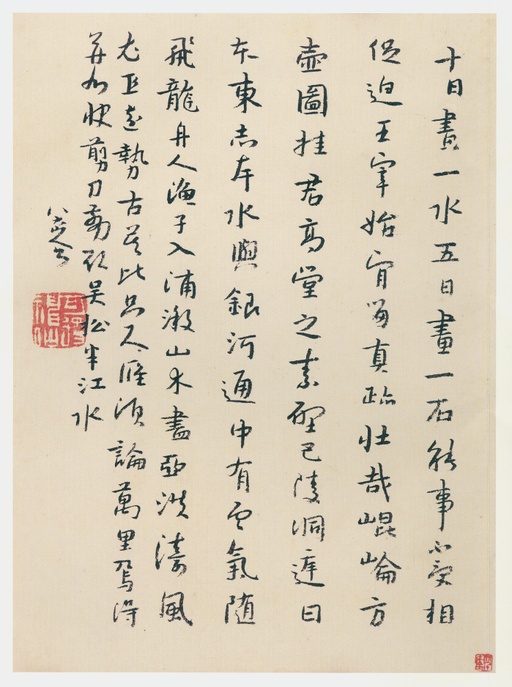 十日畫一水五日畫一石能事不受相
促迫王宰始肯留真跡壯哉崐崘方
壺圖挂君高堂之素壁巴陵洞庭日
本東赤岸水與銀河通中有雲氣隨
飛龍舟人漁子入浦漵山木盡亞洪濤風
尤工遠勢古莫比咫尺應須論萬里焉得
并州快翦刀翦取吳松半江水
八大山人